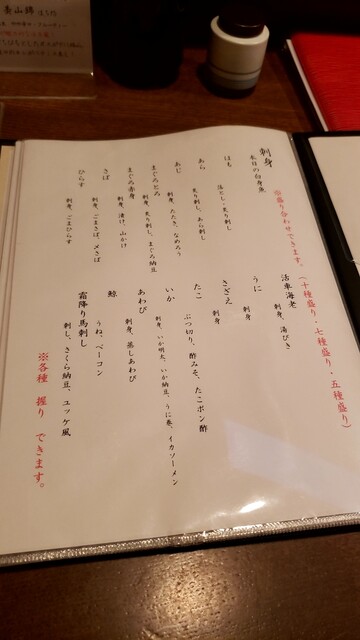 刺身
本日の白身魚
※盛り合わせできます。(十種盛り・七種盛り・五種盛り)
はも
落とし、炙り刺し
あら
炙り刺し、あら刺し
あじ
刺身、たたき、なめろう
まぐろとろ
刺身、炙り刺し、まぐろ納豆
まぐろ赤身
刺身、漬け、山かけ
さば
刺身、ごまさば、〆さば
ひらす
刺身、ごまひらす
活車海老
刺身、湯びき
うに
刺身
さざえ
刺身
たこ
ぶつ切り、酢みそ、たこポン酢
いか
刺身、いか明太、いか納豆、うに巻、イカソーメン
あわび
刺身、蒸しあわび
鯨
うね、ベーコン
霜降り馬刺し
刺し、さくら納豆、ユッケ風
※各種 握り できます。